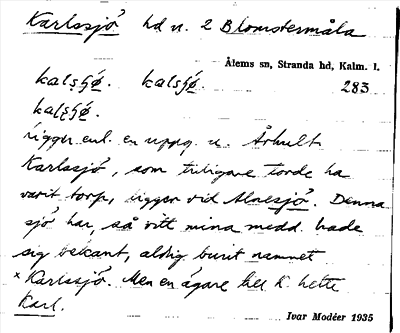 Karlssjö hd u. 2 Blomstermåla
Ålems sn, Stranda hd, Kalm. l.
283
ligger enl. en uppg. u. Århult
Karlssjö, som tidigare torde ha
varit torp, ligger vid Alnesjö. Denna
sjö har, så vitt mina medd. hade
sig bekant, aldrig burit namnet
* Karlssjö. Men en ägare till K. hette
Karl.
Ivar Modéer 1935